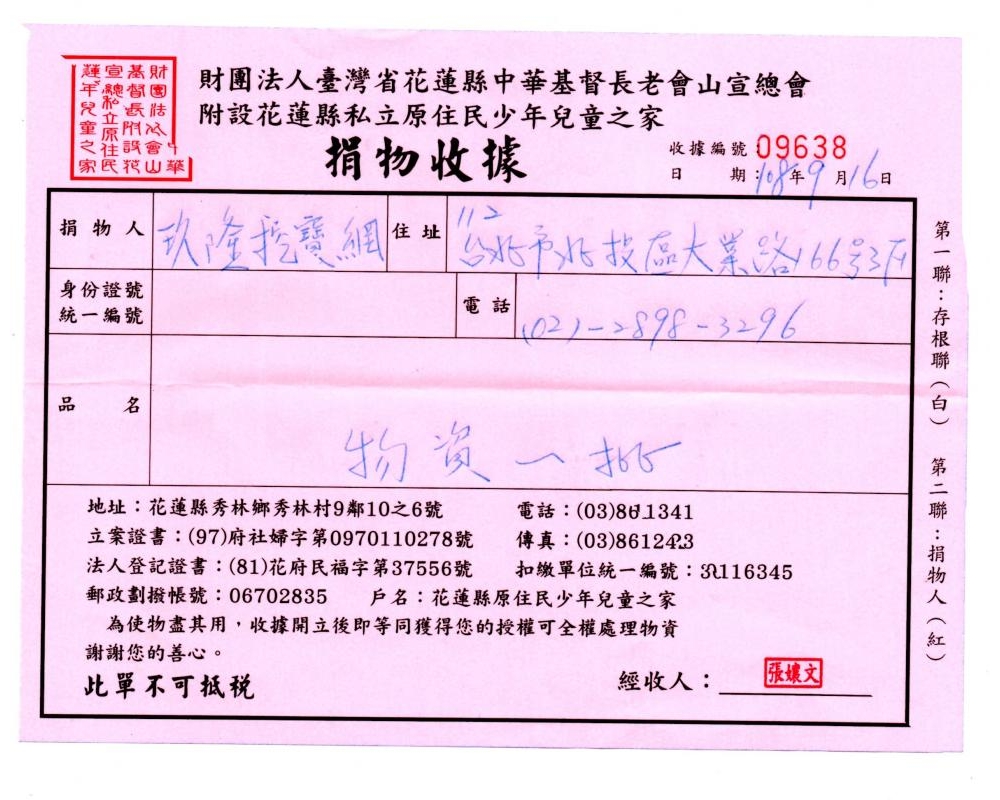 財團法人中華
基督長老會山
宣總附設花
蓮私立原住民
少年兒童之家
財團法人臺灣省花蓮縣中華基督長老會山宣總會
附設花蓮縣私立原住民少年兒童之家
捐物收據
收據編號：09638
日期：108年9月16日
捐物人 玖隆挖寶網 住址 112 台北市北投區大業路166號3F
身份證號
統一編號
電話 (02)-2898-3296
品名
物資一批
地址：花蓮縣秀林鄉秀林村9鄰10之6號 電話：(03)8611341
立案證書：(97)府社婦字第0970110278號 傳真：(03)8612423
法人登記證書：(81)花府民福字第37556號 扣繳單位統一編號：
郵政劃撥帳號：06702835 戶名：花蓮縣原住民少年兒童之家
為使物盡其用，收據開立後即等同獲得您的授權可全權處理物資
謝謝您的善心。
此單不可抵稅 經收人：張嬡文
第一聯：存根聯（白） 第二聯：捐物人（紅）